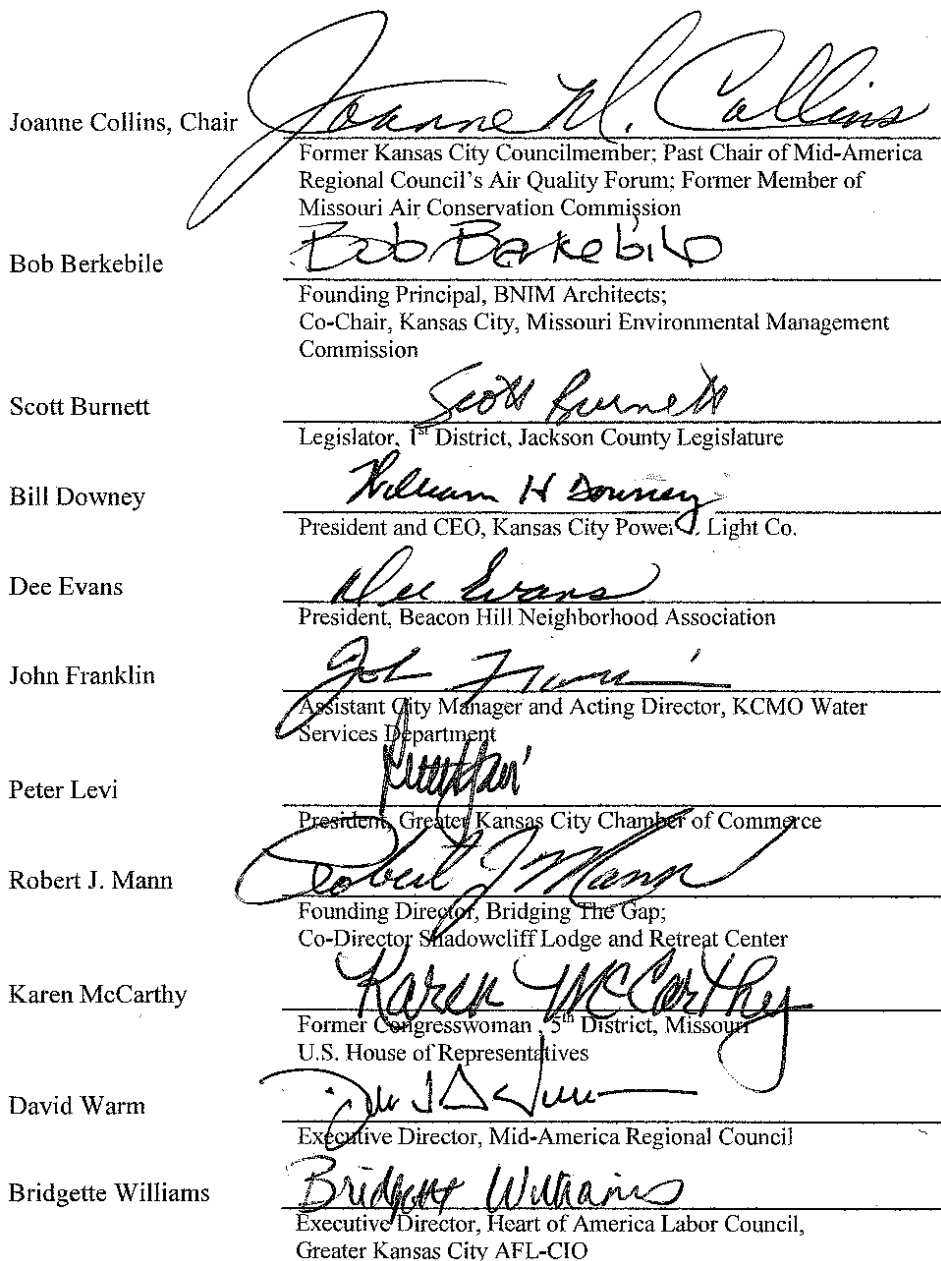 Joanne Collins, Chair Joanne M. Collins
Former Kansas City Councilmember; Past Chair of Mid-America
Regional Council's Air Quality Forum; Former Member of
Missouri Air Conservation Commission
Bob Berkebile Bob Berkebile
Founding Principal, BNIM Architects;
Co-Chair, Kansas City, Missouri Environmental Management
Commission
Scott Burnett Scott Burnett
Legislator, 1st District, Jackson County Legislature
Bill Downey William H Downey
President and CEO, Kansas City Power Light Co.
Dee Evans Dee Evans
President, Beacon Hill Neighborhood Association
John Franklin John
Assistant City Manager and Acting Director, KCMO Water
Services Department
Peter Levi
President, Greater Kansas City Chamber of Commerce
Robert J. Mann Robert J Mann
Founding Director, Bridging The Gap;
Co-Director Shadowcliff Lodge and Retreat Center
Karen McCarthy Karen McCarthy
Former Congresswoman , 5th District, Missouri
U.S. House of Representatives
David Warm
Executive Director, Mid-America Regional Council
Bridgette Williams Bridgette Williams
Executive Director, Heart of America Labor Council,
Greater Kansas City AFL-CIO